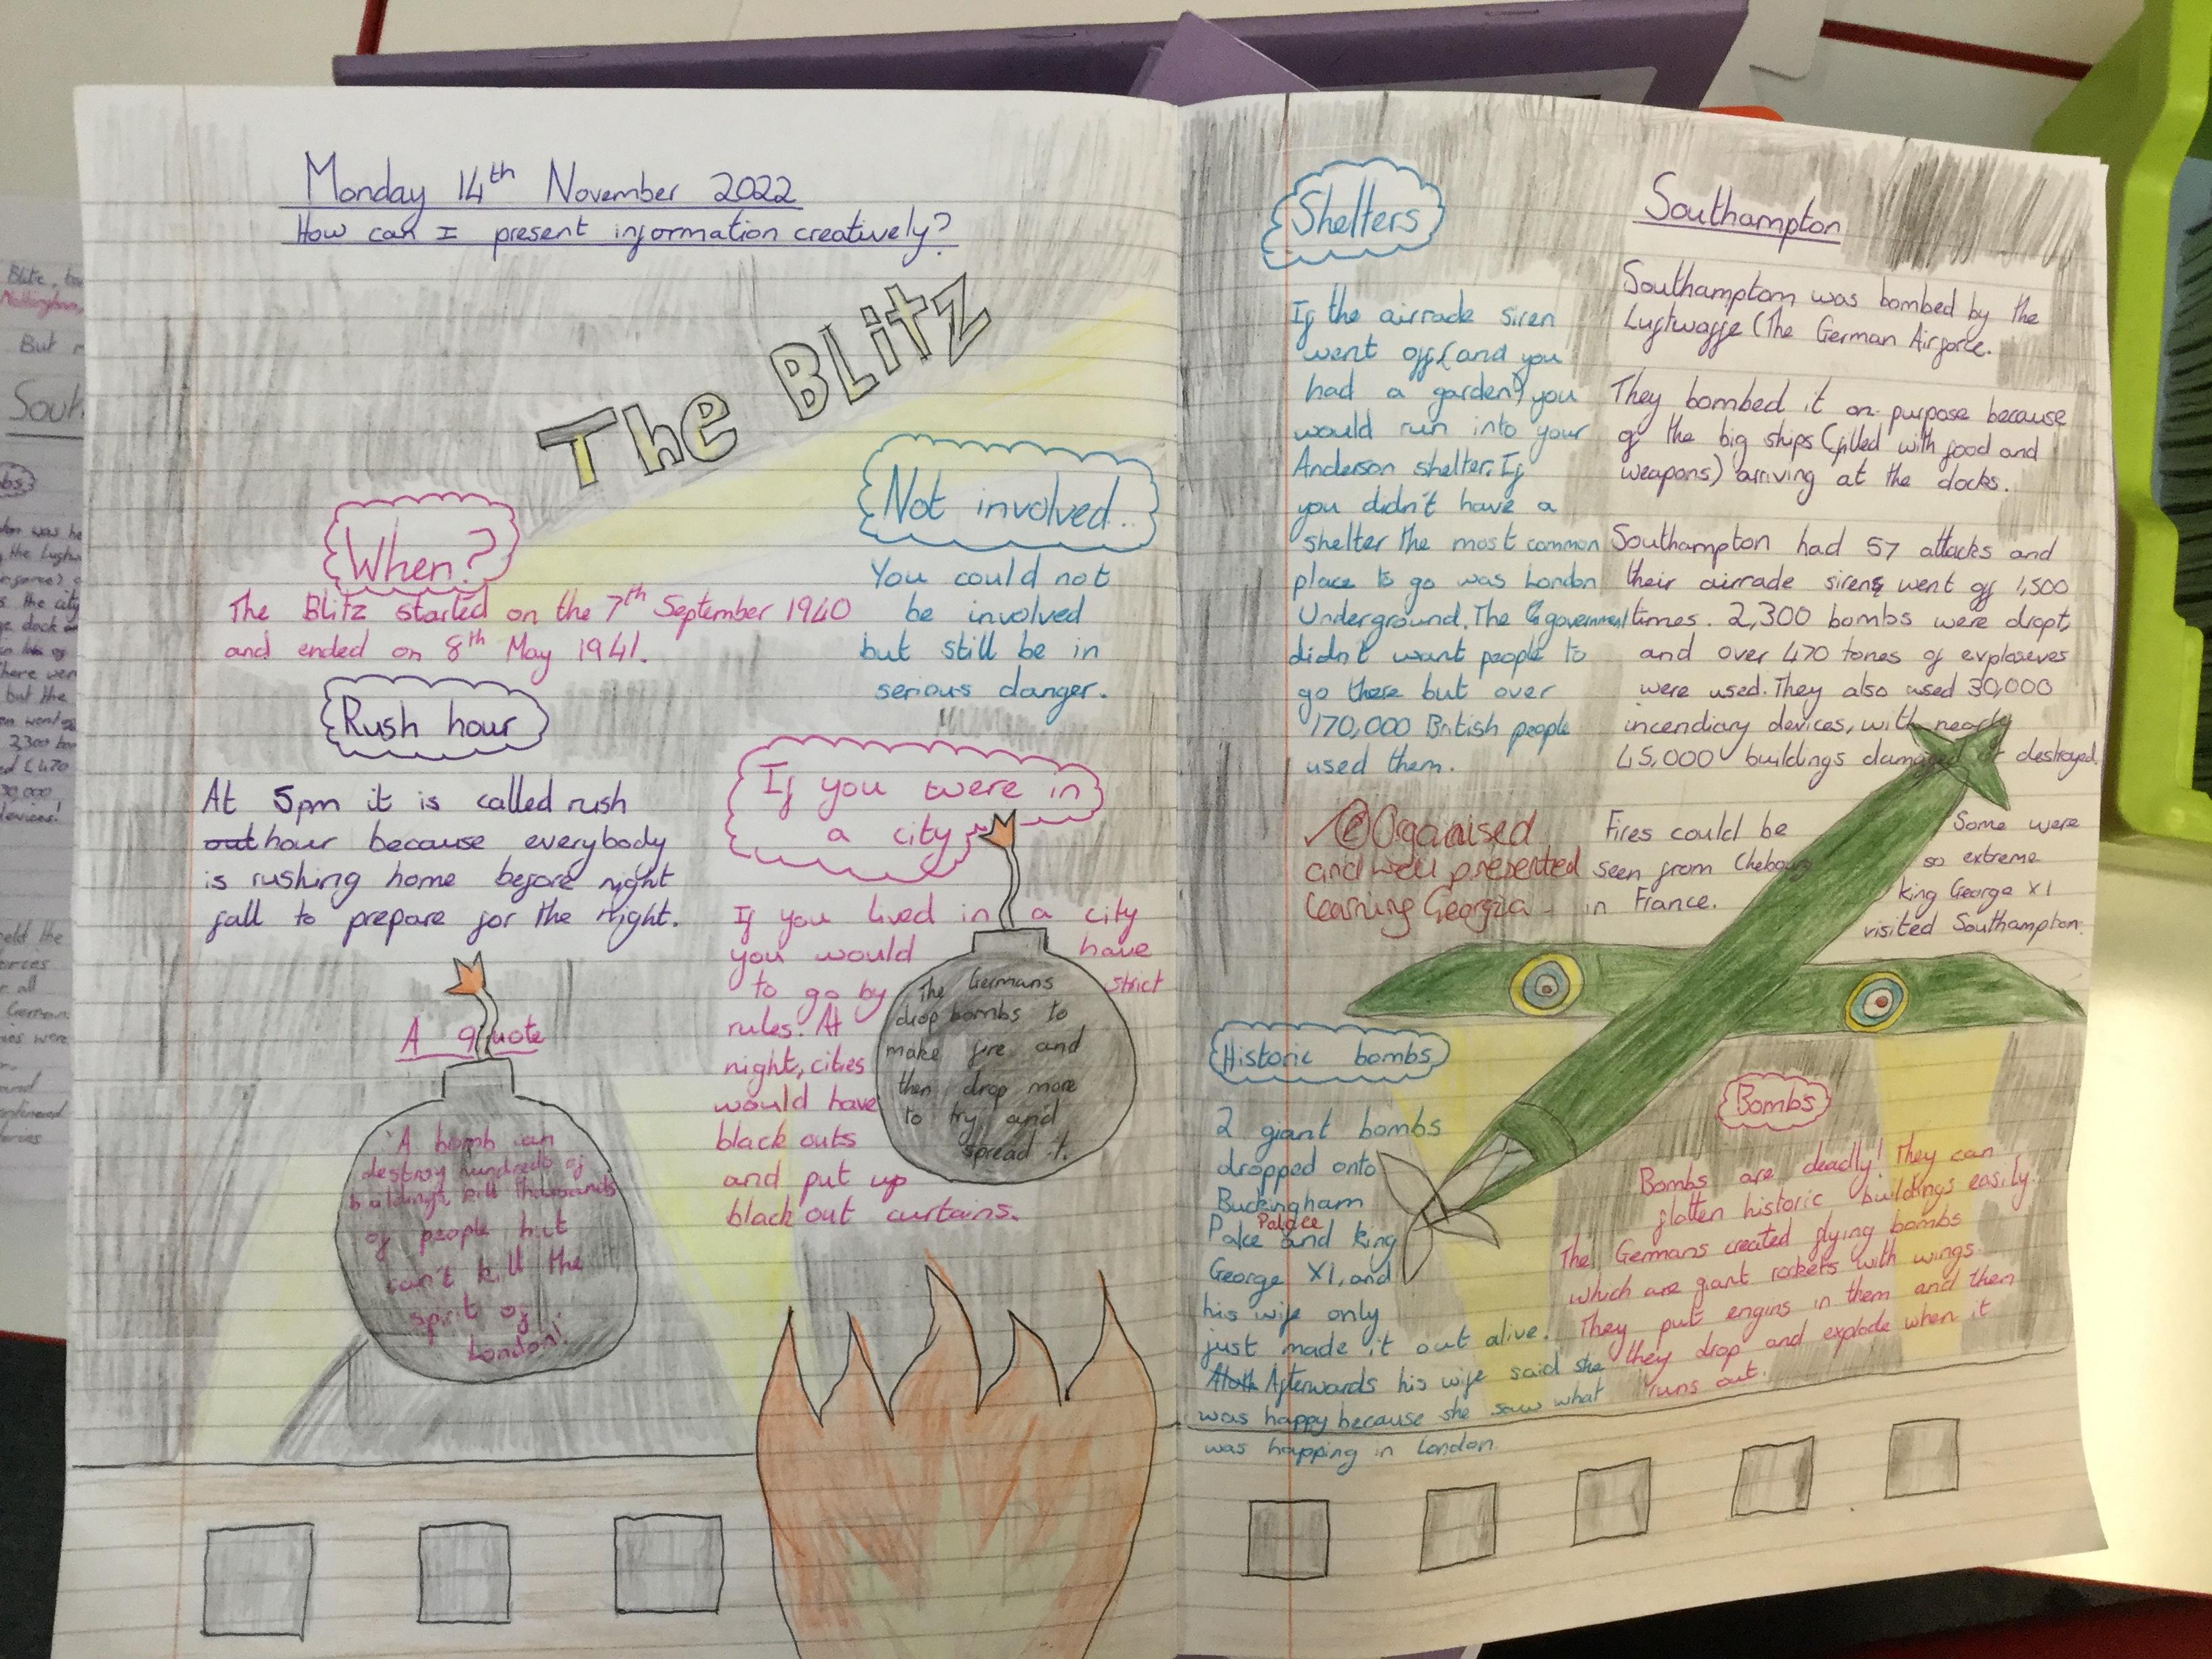 Monday 14th November 2022
How can I present information creatively?
The BLitz
When?
The Blitz started on the 7th September 1940
and ended on 8th May 1941.
Not involved..
You could not
be involved
but still be in
serious danger.
Rush hour
At 5pm it is called rush
out hour because everybody
is rushing home before night
fall to prepare for the night.
If you were in
a city
If you lived in a city
you would have
to go by strict
rules. At
night, cities
would have
black outs
and put up
black out curtains.
The Germans
drop bombs to
make fire and
then drop more
to try and
spread it.
A quote
'A bomb can
destroy hundreds of
buildings, kill thousands
of people but
can't kill the
spirit of
London!'
Shelters
If the airrade siren
went off (and you
had a garden) you
would run into your
Anderson shelter. If
you didn't have a
shelter the most common
place to go was London
Underground. The government
didn't want people to
go there but over
170,000 British people
used them.
Organised
and well presented
learning Georgia
Historic bombs
2 giant bombs
dropped onto
Buckingham
Palace
Palce and king
George X1, and
his wife only
just made it out alive.
Afterwards his wife said she
was happy because she saw what
was happing in London.
Southampton
Southampton was bombed by the
Luftwaffe (The German Airforce.
They bombed it on purpose because
of the big ships (filled with food and
weapons) arriving at the docks.
Southampton had 57 attacks and
their airrade sirens went off 1,500
times. 2,300 bombs were dropt,
and over 470 tones of exploseves
were used. They also used 30,000
incendiary devices, with nearly
45,000 buildings damaged or destroyed.
Fires could be
seen from Chebourg
in France.
Some were
so extreme
king George X1
visited Southampton.
Bombs
Bombs are deadly! They can
flatten historic buildings easily.
The Germans created flying bombs
which are giant rockets with wings.
They put engins in them and then
they drop and explode when it
runs out.